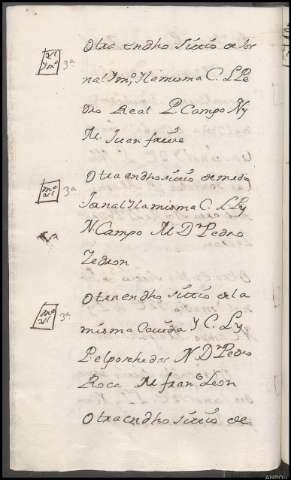 Otra en dho sittio de Jor
nal y mº, y la misma C. L Pe
dro Real P. Campo N y
M. Juan freire
3ª
Otra en dho sittio de media
Janal y la misma C. L y
N Campo M Dn Pedro
Zedron
3ª
Otra en dho sittio de la
misma Cavida y C. L y
P el porchedor N Dn Pedro
Roca M franco Leon
3ª
Otra en dho sittio de